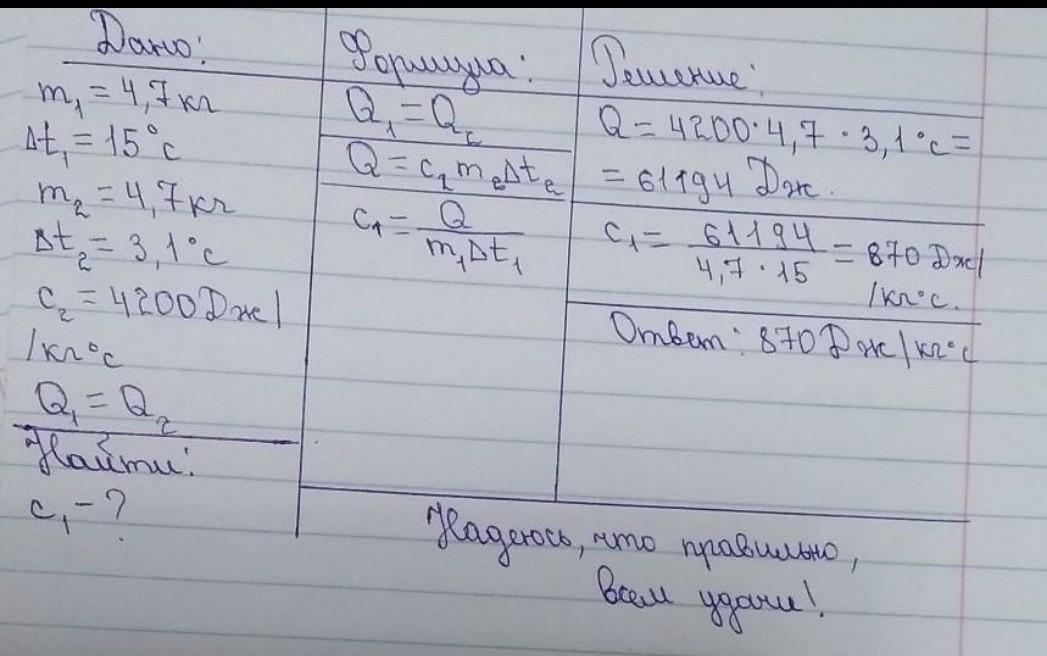 Дано:
m₁ = 4,7 кг
Δt₁ = 15°с
m₂ = 4,7 кг
Δt₂ = 3,1°с
c₂ = 4200 Дж/
/кг°с
Q₁ = Q₂
Найти:
c₁ - ?
Формула:
Q₁ = Q₂
Q = c₂ m₂ Δt₂
c₁ = Q / m₁Δt₁
Решение:
Q = 4200·4,7·3,1°с =
= 61194 Дж.
c₁ = 61194 / 4,7·15 = 870 Дж/
/кг°с.
Ответ: 870 Дж/кг°с
Надеюсь, что правильно,
всем удачи!